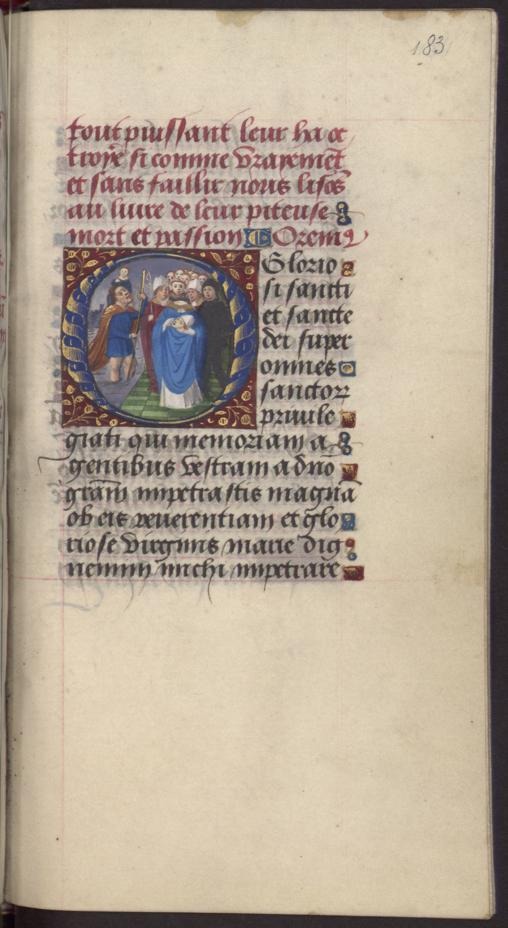 183
tout puissant leur ha oc
troye si comme vrayemēt
et sans faillir nous lisōs
au liure de leur piteuse
mort et passion Orem9
O Glorio
si sancti
et sancte
dei super
omnes
sanctorꝝ
priuile
giati qui memoriam a
gentibus vestram a dño
grām impetrastis magnā
ob eis reuerentiam et glo
riose virginis marie dig
nemini michi impetrare